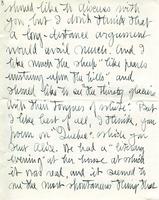 should like to discuss with
you, but I don't think that
a long-distance argument
would avail much. And I
like much the ship "like pants
upon the line", and
should like to see the thirsty
with their tongues of white. But
I like best of all, I think, your
poem on "Quebec" which you
sent Alice. We had a "literary
evening" at her house at which
it was read, and it seemed to
me the most spontaneous thing that